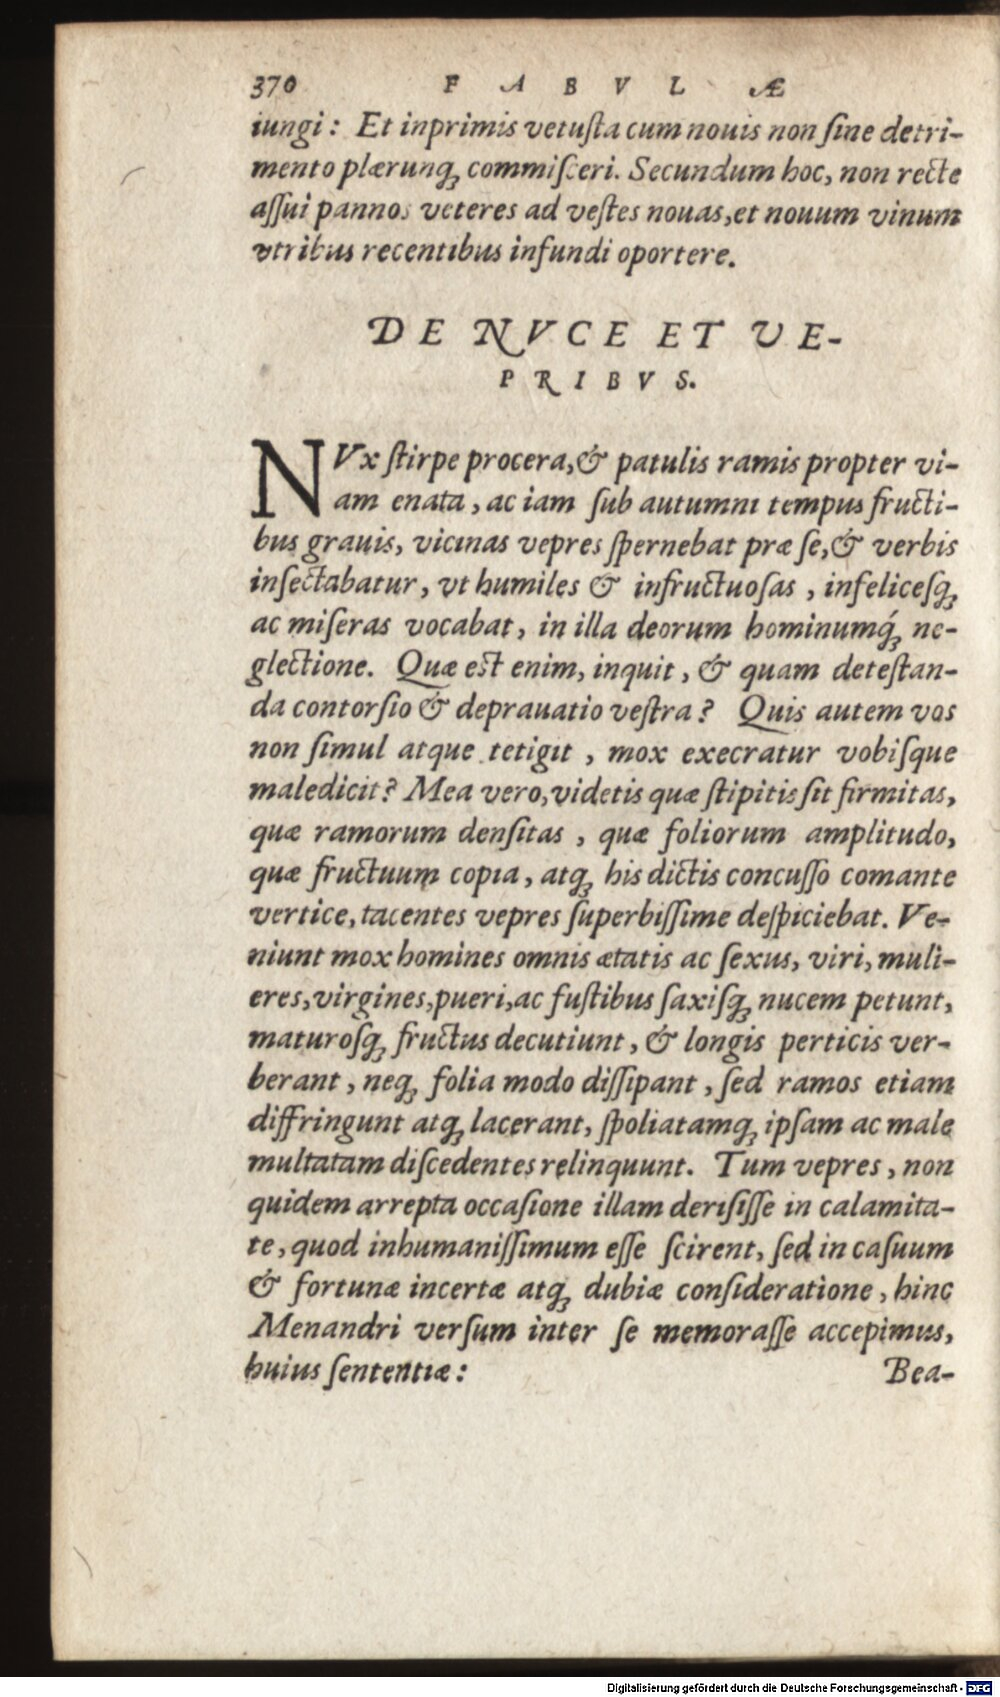 370 F A B V L Æ
iungi: Et inprimis vetuſta cum nouis non ſine detri-
mento plærunqꝫ commiſceri. Secundum hoc, non recte
aſſui pannos veteres ad veſtes nouas, et nouum vinum
vtribus recentibus infundi oportere.
DE NVCE ET VE-
PRIBVS.
NVx ſtirpe procera, & patulis ramis propter vi-
am enata, ac iam ſub autumni tempus fructi-
bus grauis, vicinas vepres ſpernebat præ ſe, & verbis
inſectabatur, vt humiles & infructuoſas, infeliceſqꝫ
ac miſeras vocabat, in illa deorum hominumqꝫ́ ne-
glectione. Quæ est enim, inquit, & quam deteſtan-
da contorſio & deprauatio veſtra? Quis autem vos
non ſimul atque tetigit, mox execratur vobiſque
maledicit? Mea vero, videtis quæ ſtipitis ſit firmitas,
quæ ramorum denſitas, quæ foliorum amplitudo,
quæ fructuum copia, atqꝫ his dictis concuſſo comante
vertice, tacentes vepres ſuperbiſſime deſpiciebat. Ve-
niunt mox homines omnis ætatis ac ſexus, viri, muli-
eres, virgines, pueri, ac fuſtibus ſaxiſqꝫ nucem petunt,
maturoſqꝫ fructus decutiunt, & longis perticis ver-
berant, neqꝫ folia modo diſſipant, ſed ramos etiam
diffringunt atqꝫ lacerant, ſpoliatamqꝫ ipſam ac male
multatam diſcedentes relinquunt. Tum vepres, non
quidem arrepta occaſione illam deriſiſſe in calamita-
te, quod inhumaniſſimum eſſe ſcirent, ſed in caſuum
& fortunæ incertæ atqꝫ dubiæ conſideratione, hinc
Menandri verſum inter ſe memoraſſe accepimus,
huius ſententiæ: Bea-
Digitalisierung gefördert durch die Deutsche Forschungsgemeinschaft - DFG